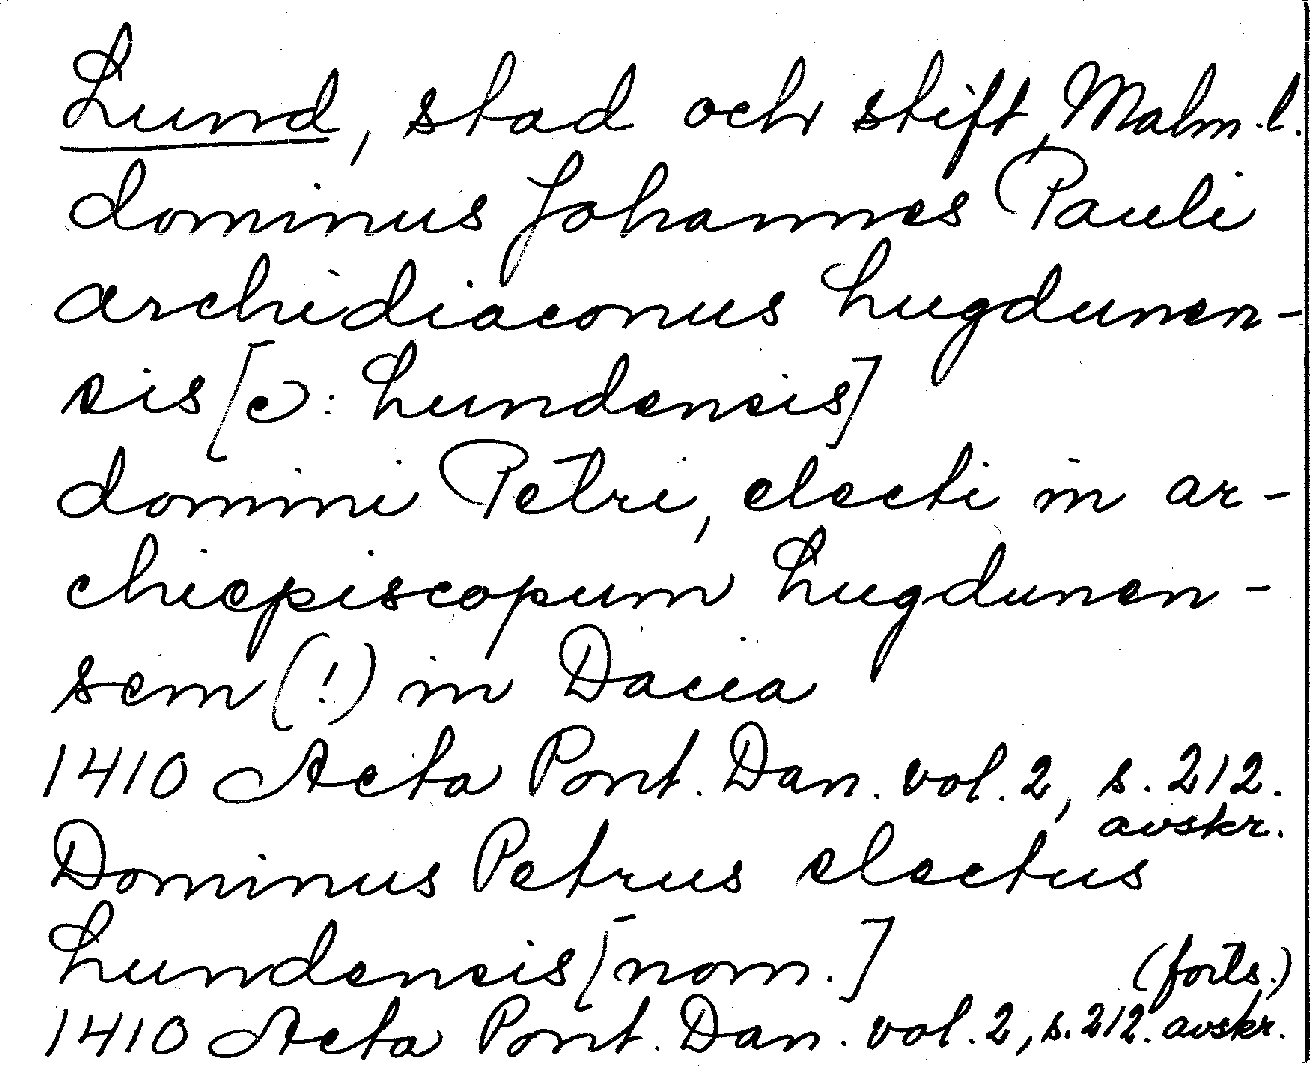 Lund, stad och stift, Malm. l.
dominus Johannes Pauli
archidiaconus Lugdunen-
sis [ɔ: Lundensis]
domini Petri, electi in ar-
chiepiscopum Lugdunen-
sem (!) in Dacia
1410 Acta Pont. Dan. vol. 2, s. 212.
avskr.
Dominus Petrus electus
Lundensis [nom.]
(forts.)
1410 Acta Pont. Dan. vol. 2, s. 212. avskr.